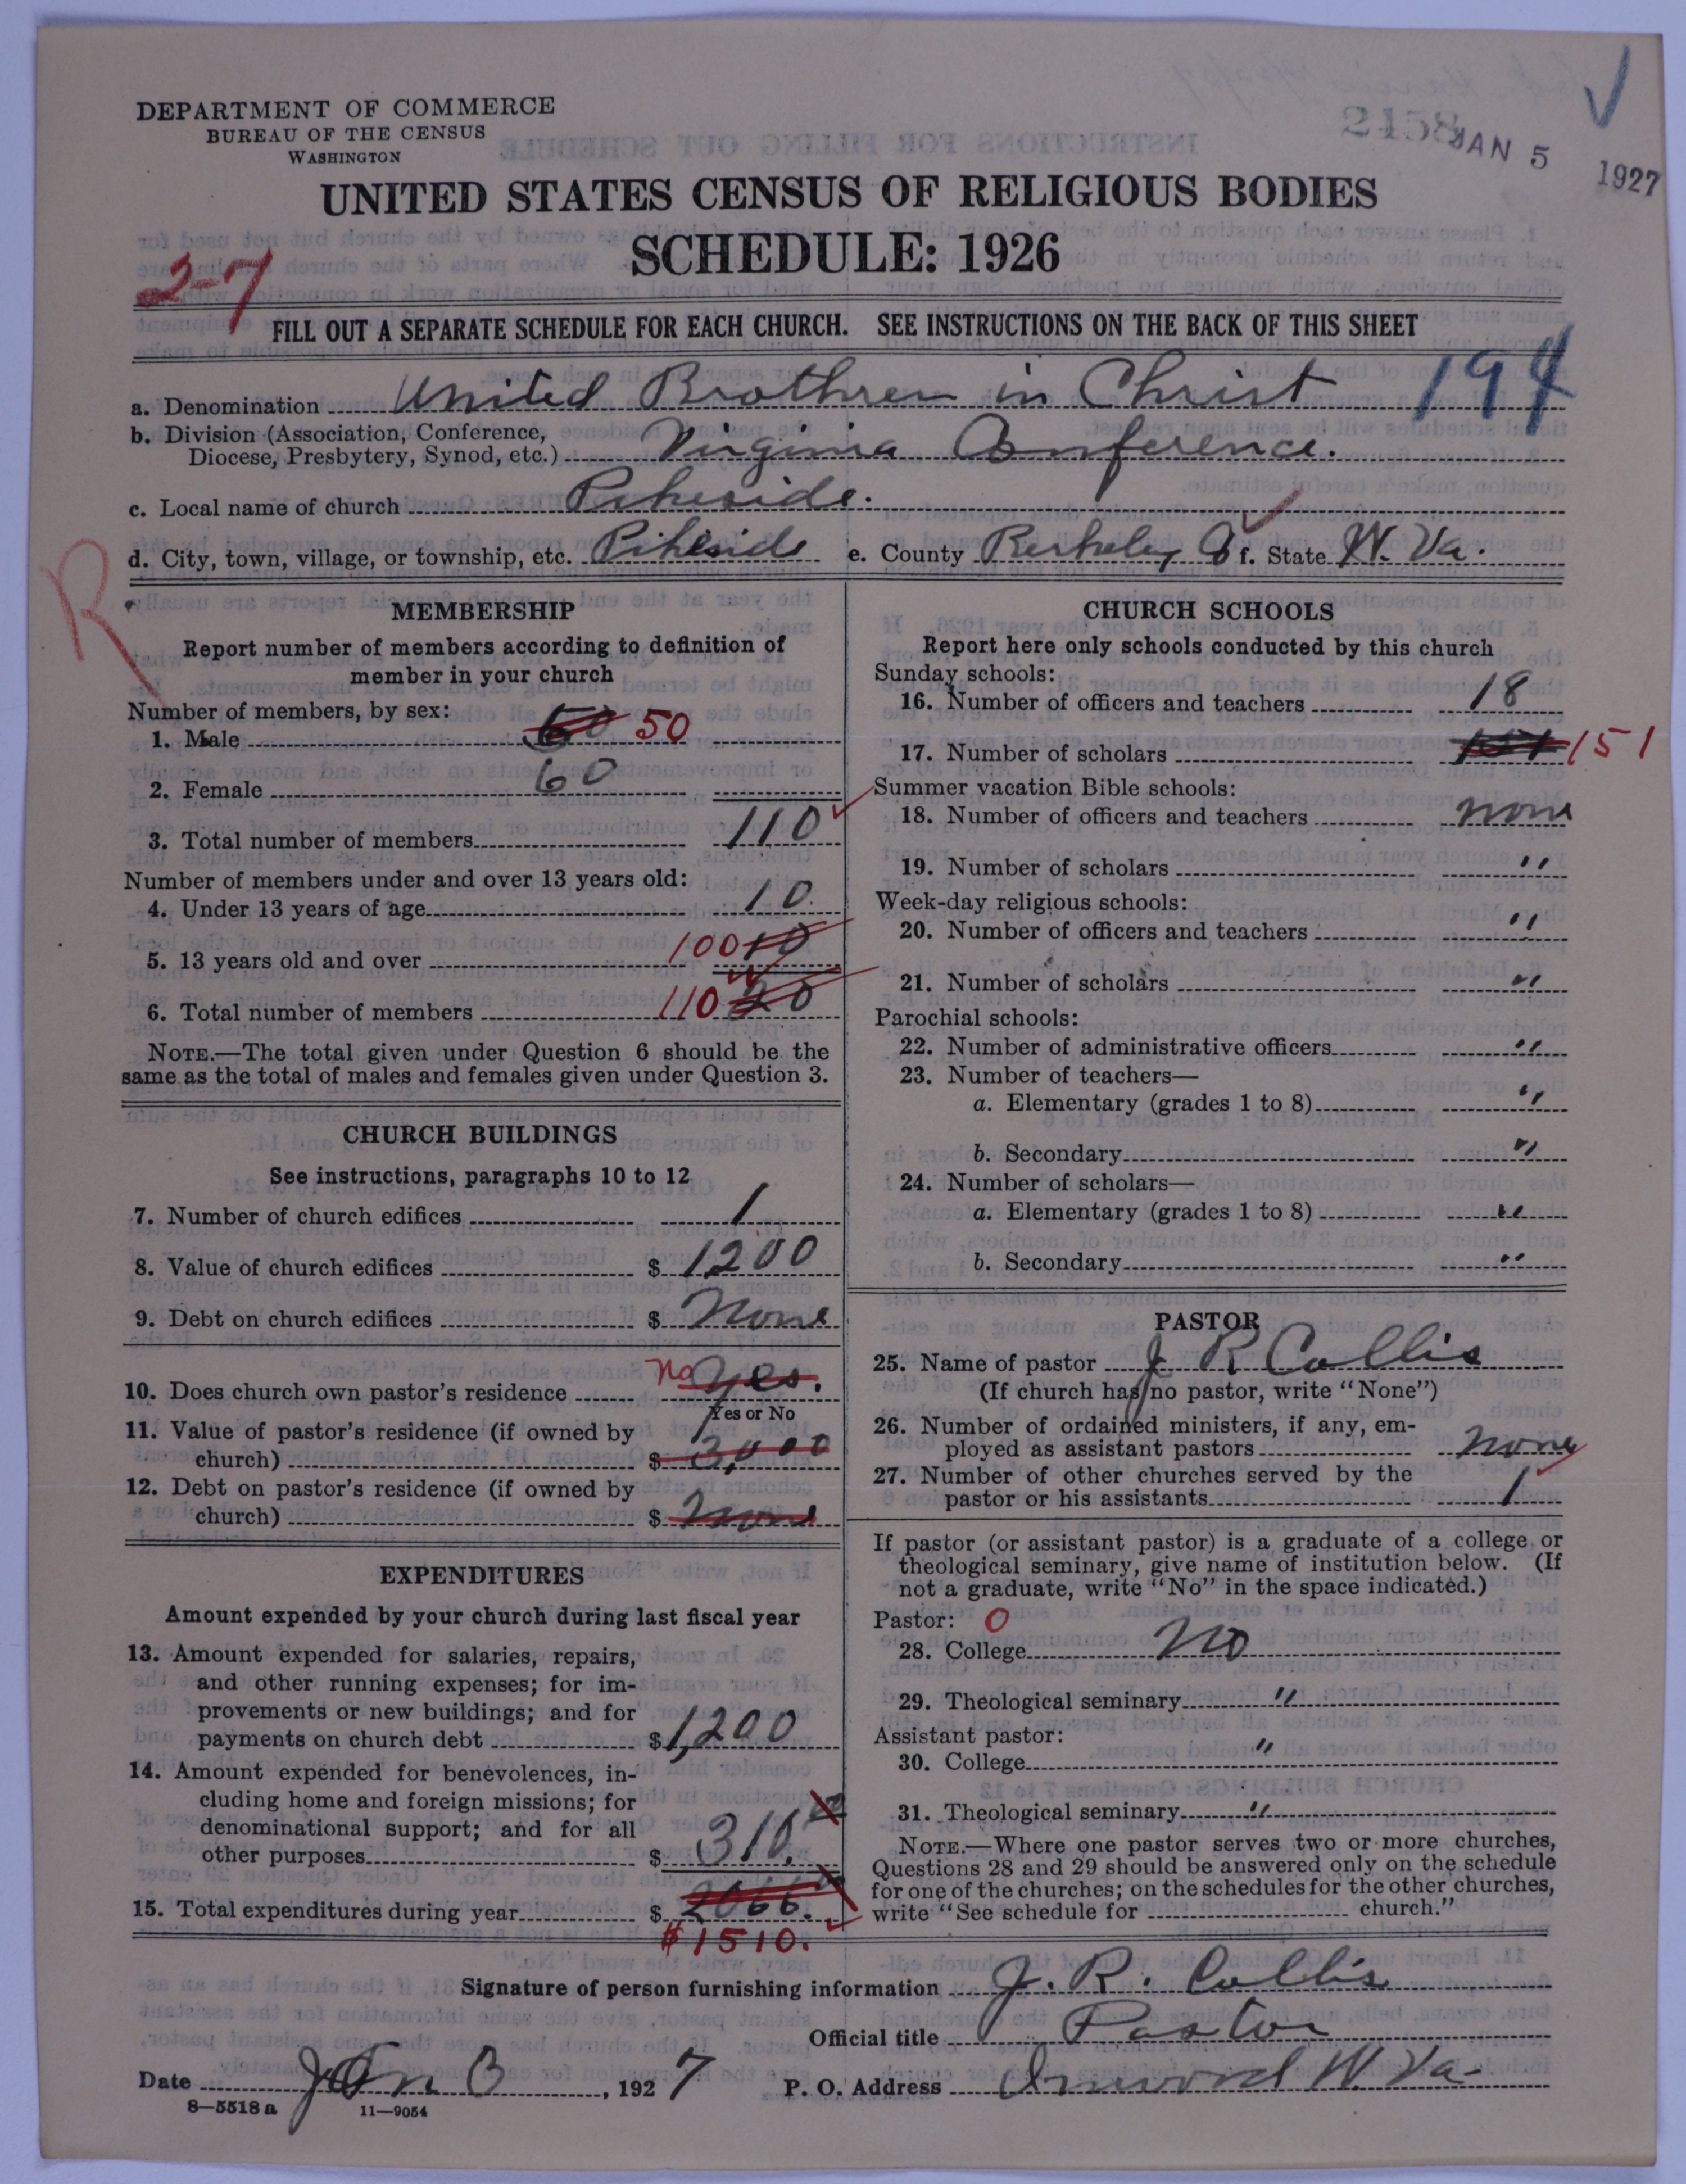 DEPARTMENT OF COMMERCE
BUREAU OF THE CENSUS
WASHINGTON
2158 JAN 5 1927
UNITED STATES CENSUS OF RELIGIOUS BODIES
SCHEDULE: 1926
2-7
FILL OUT A SEPARATE SCHEDULE FOR EACH CHURCH. SEE INSTRUCTIONS ON THE BACK OF THIS SHEET
a. Denomination United Brothren in Christ 194
b. Division (Association, Conference,
Diocese, Presbytery, Synod, etc.) Virginia Conference.
c. Local name of church Pikeside.
d. City, town, village, or township, etc. Pikeside e. County Berkeley Co f. State W. Va.
R
MEMBERSHIP
Report number of members according to definition of
member in your church
Number of members, by sex:
1. Male 60 50
2. Female 60
3. Total number of members 110
Number of members under and over 13 years old:
4. Under 13 years of age 10
5. 13 years old and over 100 10
6. Total number of members 110 20
NOTE.—The total given under Question 6 should be the
same as the total of males and females given under Question 3.
CHURCH BUILDINGS
See instructions, paragraphs 10 to 12
7. Number of church edifices 1
8. Value of church edifices $ 1200
9. Debt on church edifices $ None
10. Does church own pastor's residence no yes.
Yes or No
11. Value of pastor's residence (if owned by
church) $ 3,000
12. Debt on pastor's residence (if owned by
church) $ None
EXPENDITURES
Amount expended by your church during last fiscal year
13. Amount expended for salaries, repairs,
and other running expenses; for im-
provements or new buildings; and for
payments on church debt $ 1,200
14. Amount expended for benevolences, in-
cluding home and foreign missions; for
denominational support; and for all
other purposes $ 310.
15. Total expenditures during year $ 2066.
$1510.
CHURCH SCHOOLS
Report here only schools conducted by this church
Sunday schools:
16. Number of officers and teachers 18
17. Number of scholars 151 151
Summer vacation Bible schools:
18. Number of officers and teachers none
19. Number of scholars "
Week-day religious schools:
20. Number of officers and teachers "
21. Number of scholars "
Parochial schools:
22. Number of administrative officers "
23. Number of teachers—
a. Elementary (grades 1 to 8) "
b. Secondary "
24. Number of scholars—
a. Elementary (grades 1 to 8) "
b. Secondary "
PASTOR
25. Name of pastor J R Collis
(If church has no pastor, write "None")
26. Number of ordained ministers, if any, em-
ployed as assistant pastors none
27. Number of other churches served by the
pastor or his assistants 1
If pastor (or assistant pastor) is a graduate of a college or
theological seminary, give name of institution below. (If
not a graduate, write "No" in the space indicated.)
Pastor: 0
28. College No
29. Theological seminary "
Assistant pastor:
30. College "
31. Theological seminary "
NOTE.—Where one pastor serves two or more churches,
Questions 28 and 29 should be answered only on the schedule
for one of the churches; on the schedules for the other churches,
write "See schedule for church."
Signature of person furnishing information J. R. Collis
Official title Pastor
Date Jan 3, 1927 P. O. Address Inwood W. Va.
8—5518 a 11—9054